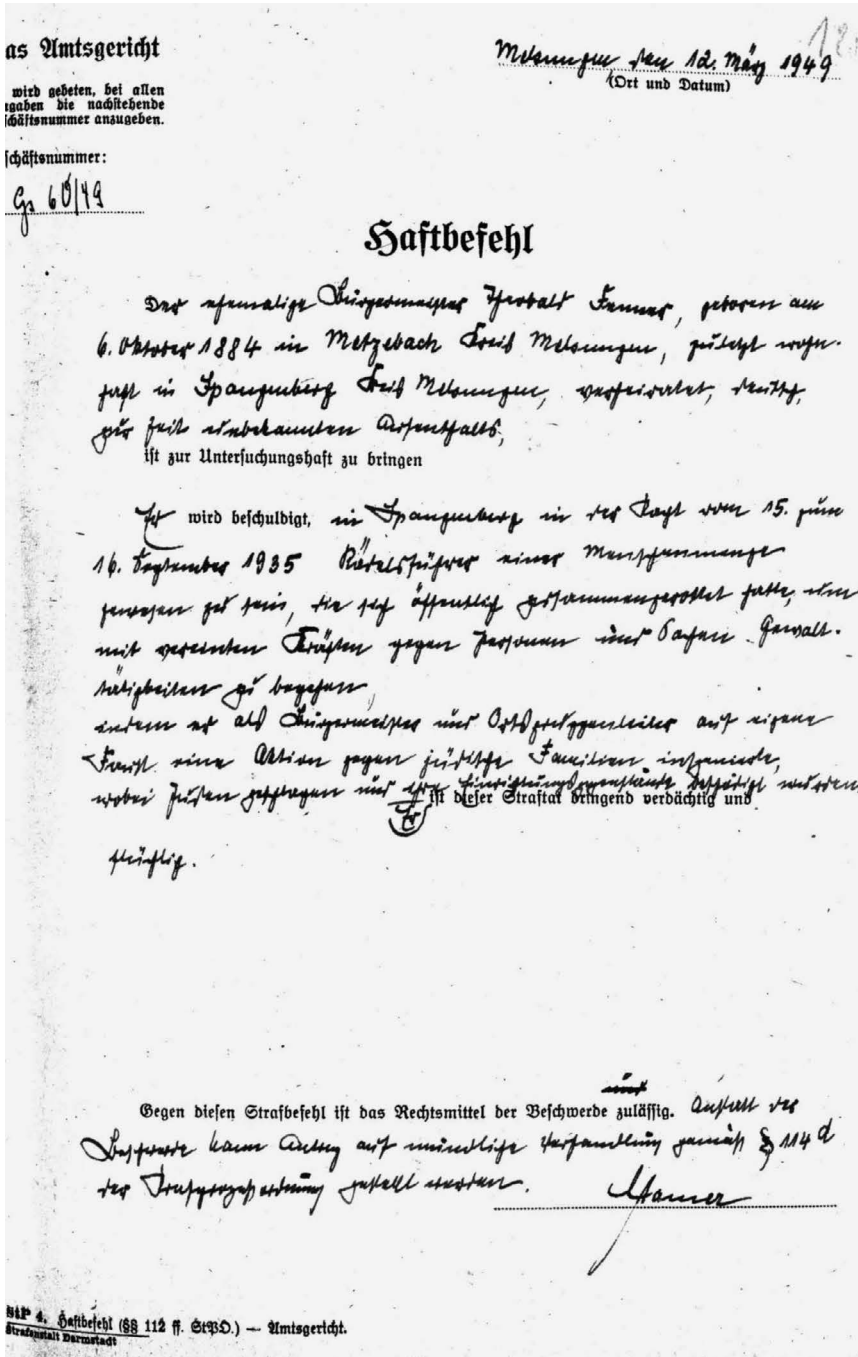 as Amtsgericht
Melsungen den 12. März 1949
(Ort und Datum)
wird gebeten, bei allen
ngaben die nachstehende
schäftsnummer anzugeben.
schäftsnummer:
Gs 60/49
Haftbefehl
Der ehemalige Bürgermeister Theobald Fenner, geboren am
6. Oktober 1884 in Metzebach Kreis Melsungen, zuletzt wohn-
haft in Spangenberg Kreis Melsungen, verheiratet, deutsch,
zur Zeit unbekannten Aufenthalts,
ist zur Untersuchungshaft zu bringen
Er wird beschuldigt, in Spangenberg in der Nacht vom 15. zum
16. September 1935 Rädelsführer einer Menschenmenge
gewesen zu sein, die sich öffentlich zusammengerottet hatte, um
mit vereinten Kräften gegen Personen und Sachen Gewalt-
tätigkeiten zu begehen,
indem er als Bürgermeister und Ortsgruppenleiter auf eigene
Faust eine Aktion gegen jüdische Familien inszenierte,
wobei Juden geschlagen und ihre Einrichtungsgegenstände beschädigt wurden
Er ist dieser Straftat dringend verdächtig und
flüchtig.
Gegen diesen Strafbefehl ist das Rechtsmittel der Beschwerde zulässig. Anstatt der
Beschwerde kann Antrag auf mündliche Verhandlung gemäß § 114 d
der Strafprozeßordnung gestellt werden.
StP 4. Haftbefehl (§§ 112 ff. StPO.) — Amtsgericht.
Strafanstalt Darmstadt